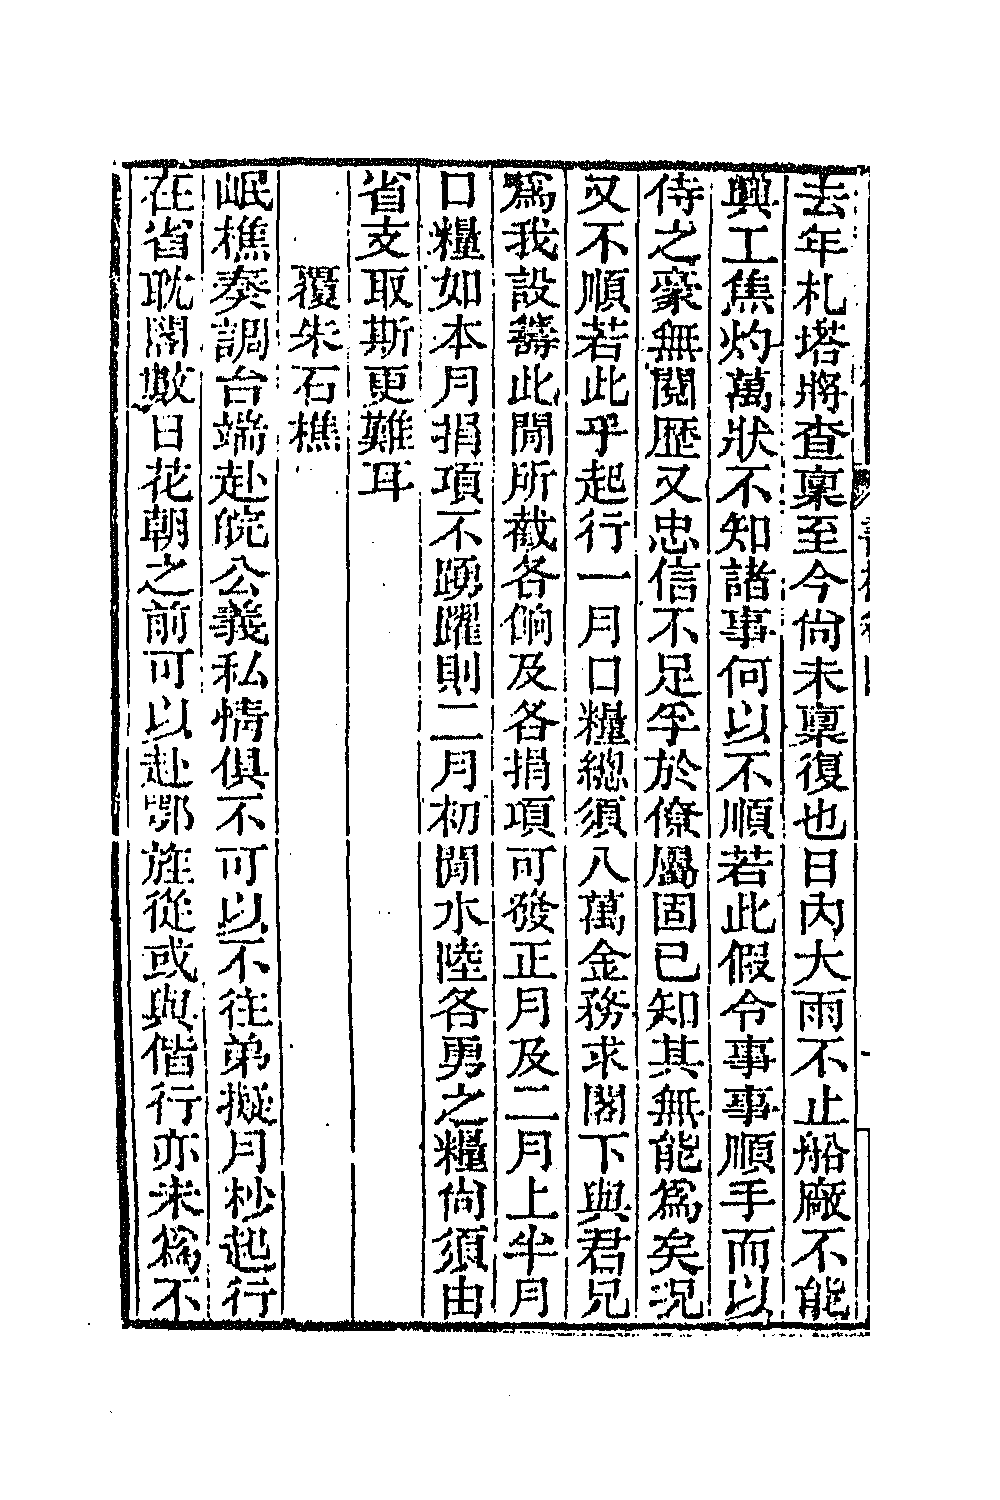 去年札塔將查稟至今尙未稟復也日內大雨不止船廠不能
興工焦灼萬狀不知諸事何以不順若此假令事事順手而以
侍之豪無閱歷又忠信不足孚於僚屬固已知其無能爲矣況
又不順若此乎起行一月口糧總須八萬金務求閣下與君兄
爲我設籌此間所截各餉及各捐項可發正月及二月上半月
口糧如本月捐項不踴躍則二月初間水陸各勇之糧尙須由
省支取斯更難耳
覆朱石樵
岷樵奏調台端赴皖公義私情俱不可以不往弟擬月杪起行
在省耽閣數日花朝之前可以赴鄂旌從或與偕行亦未爲不